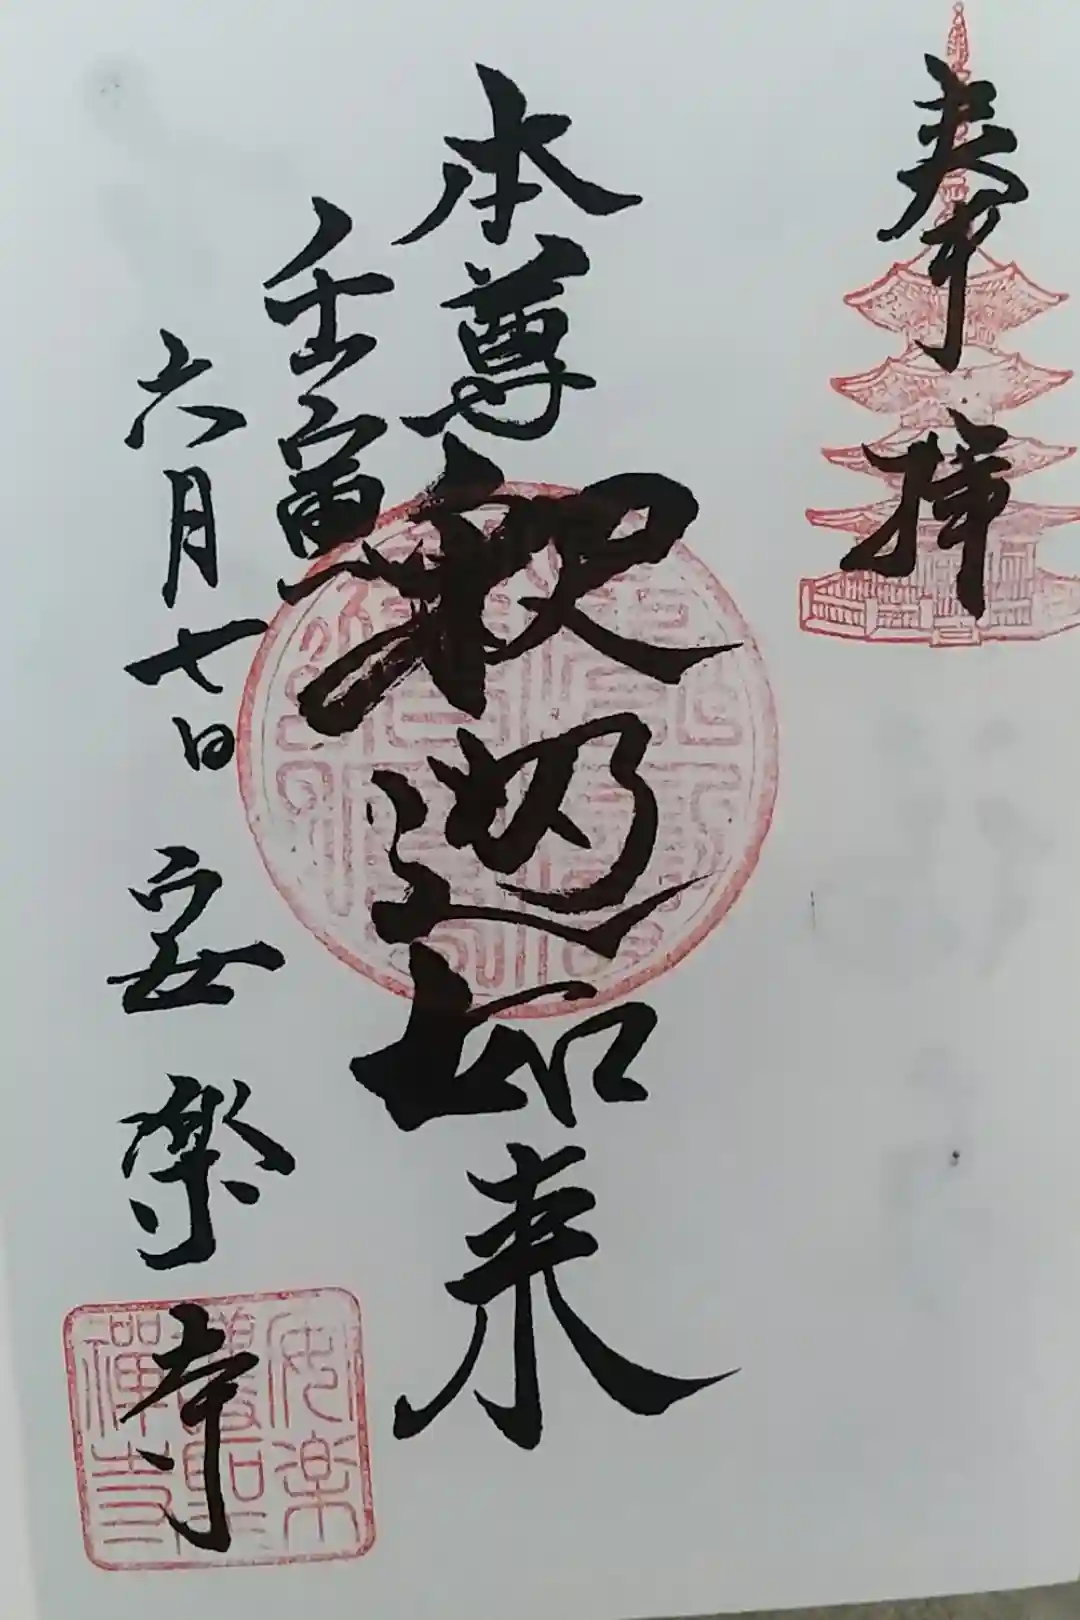 奉拝
本尊釈迦如来
壬寅
六月七日 安楽寺
安楽
護聖
禅寺